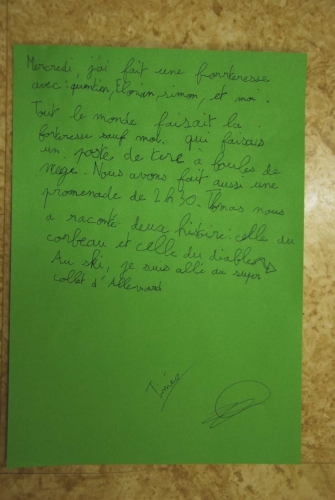 Mercredi, j'ai fait une forteresse
avec: quentien, Elorian, simon, et moi.
Tout le monde faisait la
forteresse sauf moi. qui faisais
un poste de tire à boules de
neige. Nous avons fait aussi une
promenade de 2h30. Thomas nous
a raconté deux histoire: celle du
corbeau et celle du diable
Au ski, je suis allé au super
collet d'Allevard